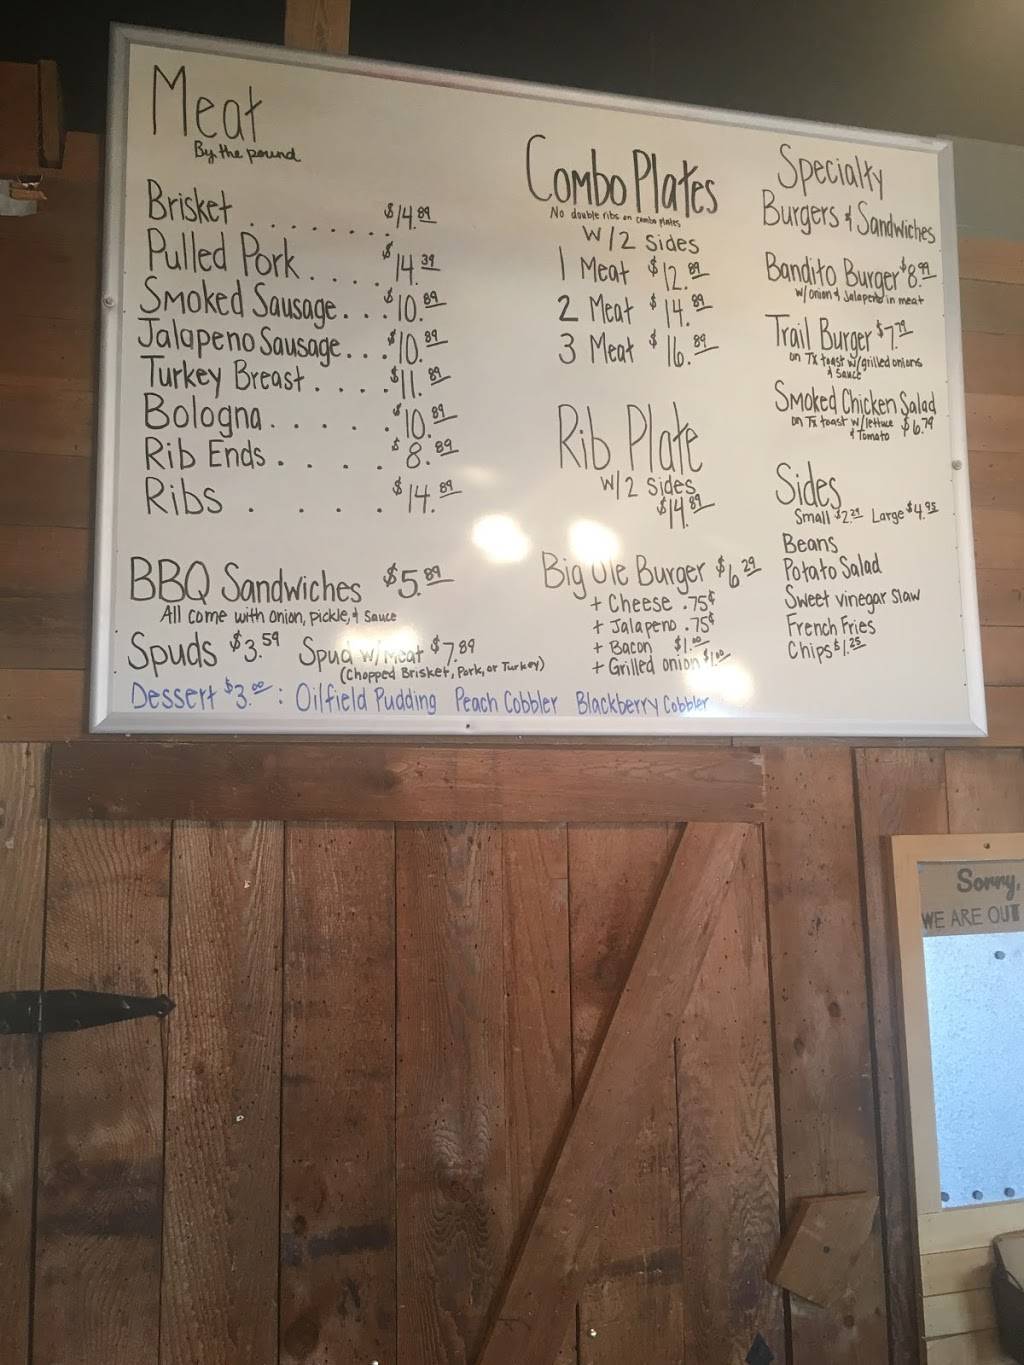 Meat
By the pound
Brisket . . . . . . . . $14.89
Pulled Pork . . . . $14.39
Smoked Sausage . . . $10.89
Jalapeno Sausage . . . $10.89
Turkey Breast . . . . $11.89
Bologna . . . . . . $10.89
Rib Ends . . . . $8.89
Ribs . . . . . $14.89
BBQ Sandwiches $5.89
All come with onion, pickle, & sauce
Spuds $3.59 Spud w/Meat $7.89
(Chopped Brisket, Pork, or Turkey)
Dessert $3.00 : Oilfield Pudding Peach Cobbler Blackberry Cobbler
Combo Plates
No double ribs on combo plates
w/2 sides
1 Meat $12.89
2 Meat $14.89
3 Meat $16.89
Rib Plate
w/2 sides
$14.89
Big Ole Burger $6.29
+ Cheese .75¢
+ Jalapeno .75¢
+ Bacon $1.00
+ Grilled onion $1.00
Specialty
Burgers & Sandwiches
Bandito Burger $8.99
w/onion & Jalapeno in meat
Trail Burger $7.79
on TX toast w/grilled onions
& sauce
Smoked Chicken Salad
on TX toast w/lettuce $6.79
& Tomato
Sides
Small $2.29 Large $4.95
Beans
Potato Salad
Sweet vinegar slaw
French Fries
Chips $1.25
Sorry,
WE ARE OUT